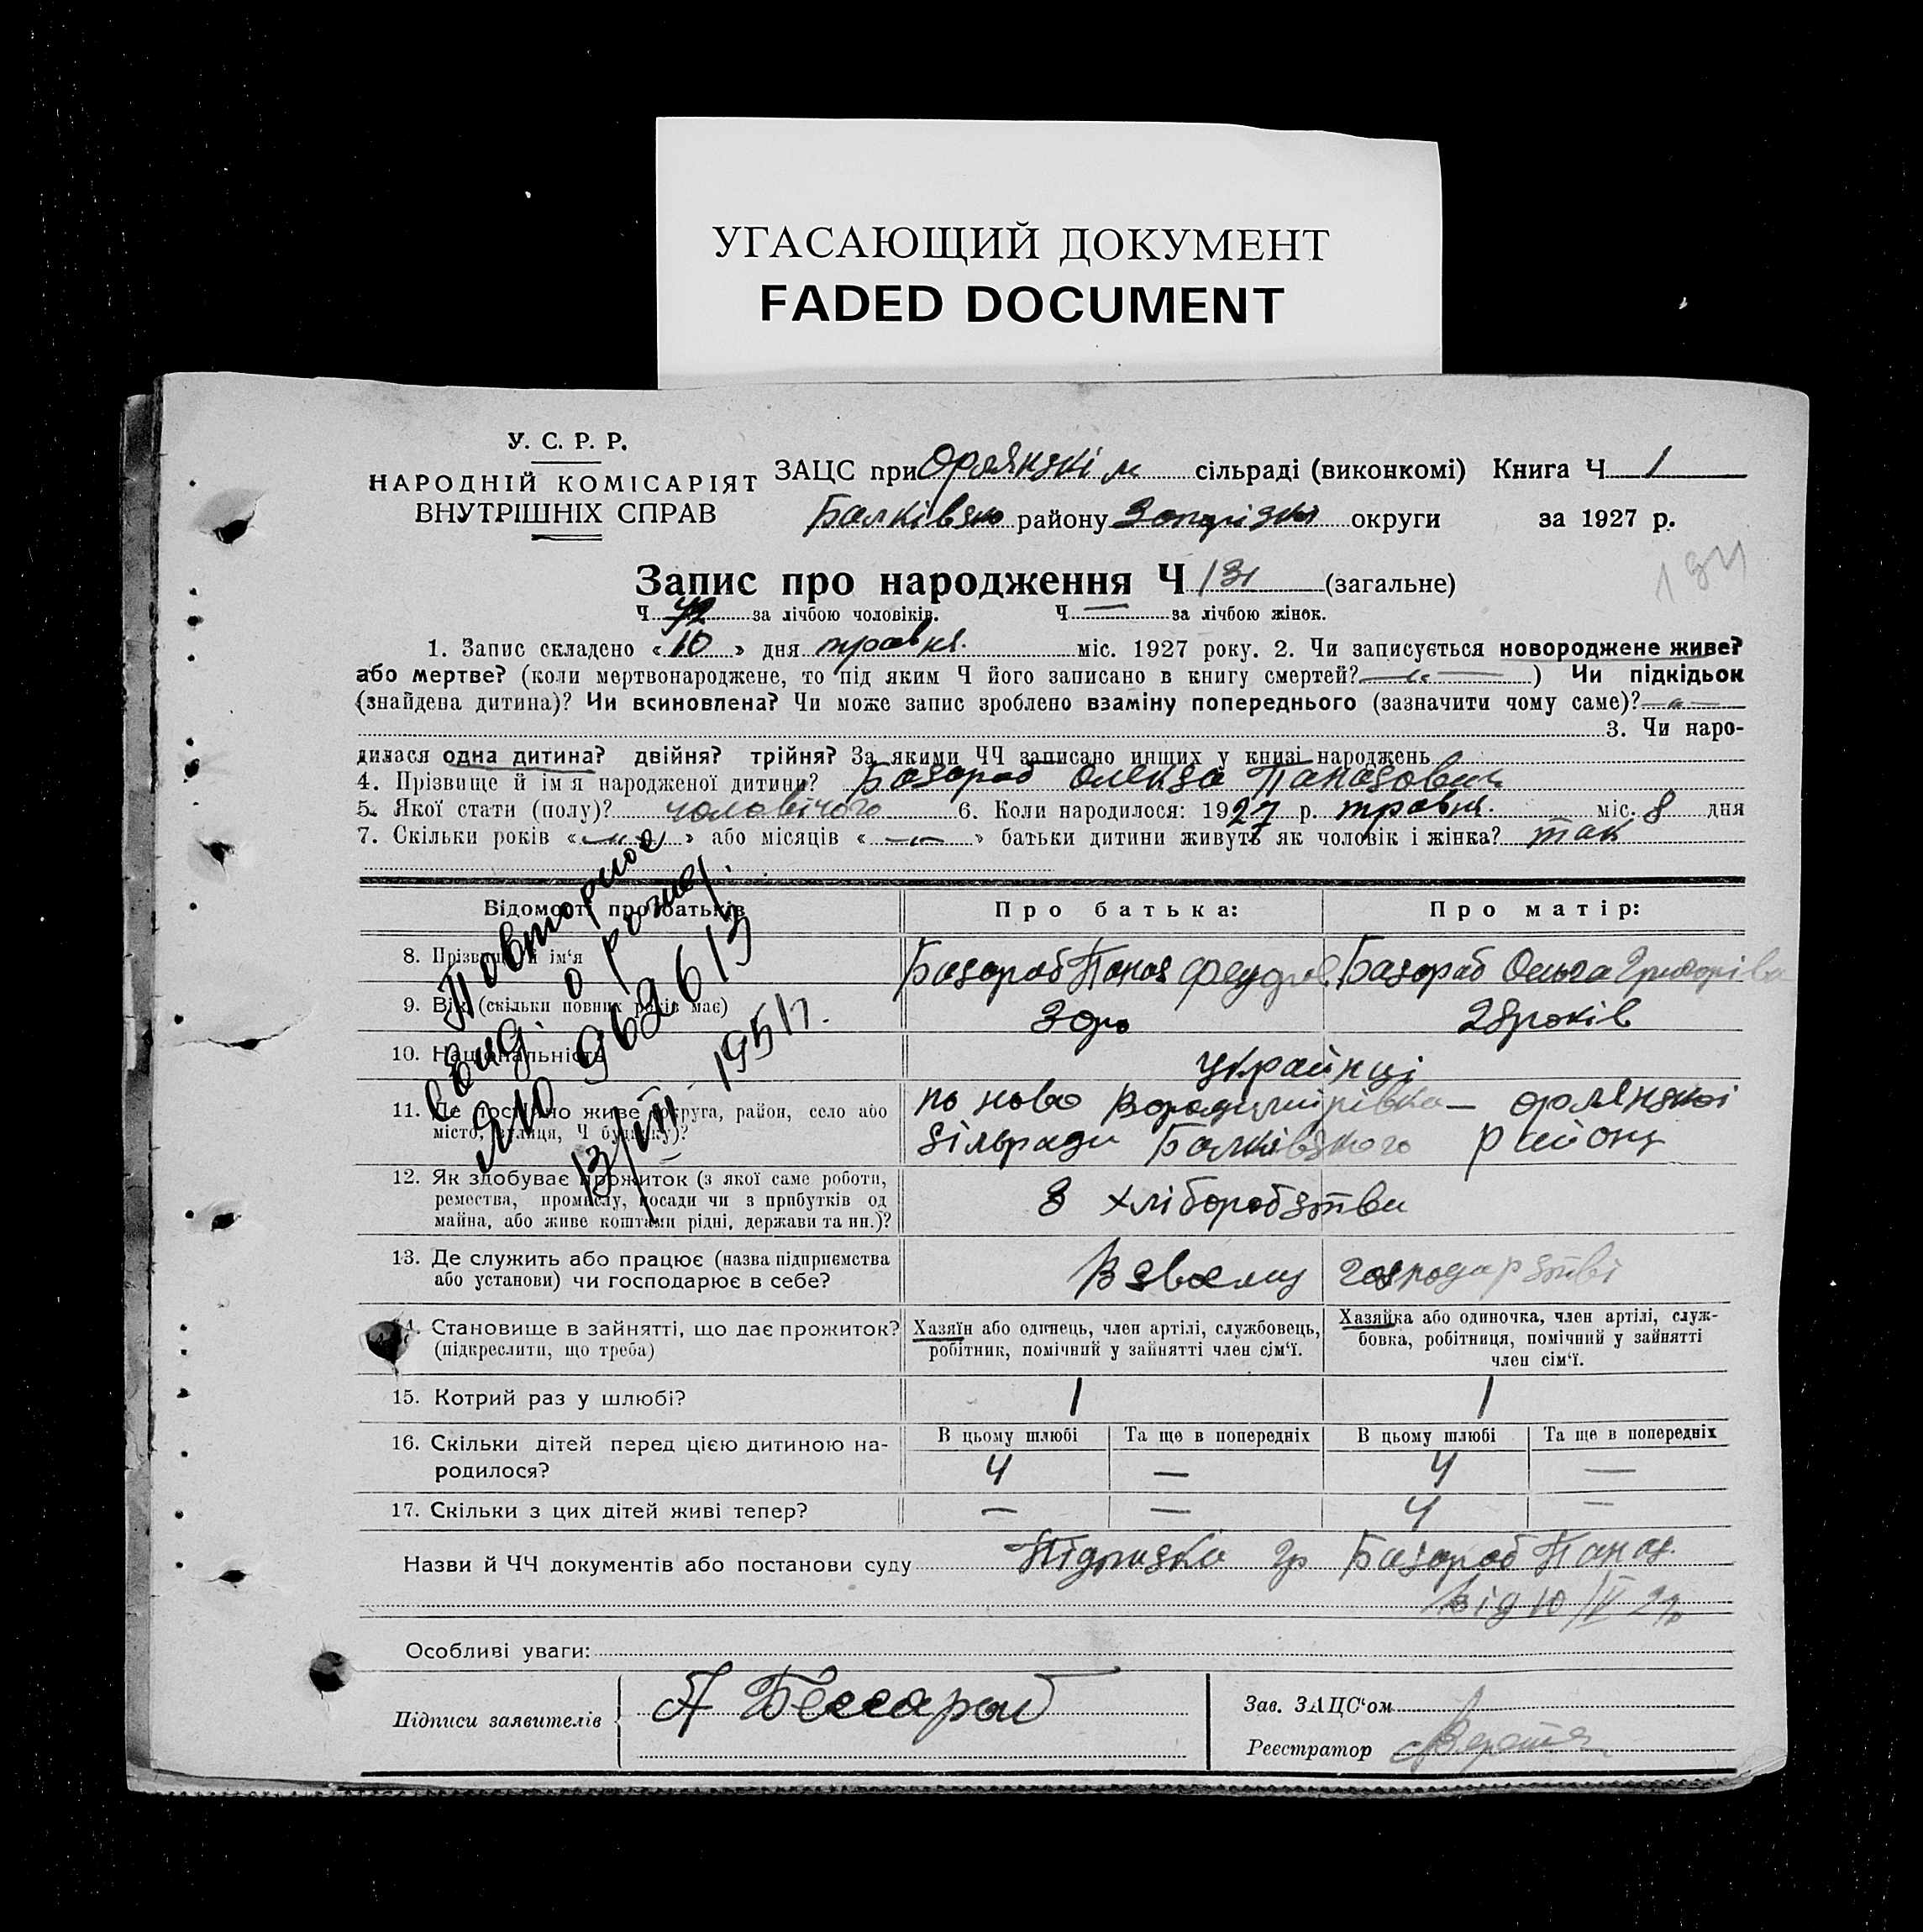 УГАСАЮЩИЙ ДОКУМЕНТ
FADED DOCUMENT
У. С. Р. Р.
НАРОДНІЙ КОМІСАРІЯТ
ВНУТРІШНІХ СПРАВ
ЗАЦС при Орлянскій сільраді (виконкомі) Книга Ч 1
Балківсько району округи за 1927 р.
Запис про народження Ч 131 (загальне)
Ч 72 за лічбою чоловіків. Ч — за лічбою жінок.
1. Запис складено «10» дня травня. міс. 1927 року. 2. Чи записується новороджене живе?
або мертве? (коли мертвонароджене, то під яким Ч його записано в книгу смертей? —„—) Чи підкідьок
(знайдена дитина)? Чи всиновлена? Чи може запис зроблено взаміну попереднього (зазначити чому саме)? —„—
3. Чи наро-
дилася одна дитина? двійня? трійня? За якими ЧЧ записано инших у книзі народжень
4. Прізвище й ім'я народженої дитини? Басараб Олекса Панасович
5. Якої стати (полу)? чоловічого 6. Коли народилося: 1927 р. травня. міс. 8 дня
7. Скільки років «—„—» або місяців «—„—» батьки дитини живуть як чоловік і жінка? так
Повторное
свид. о рожд.
ЯЮ 969613
13/III 1951г.
Відомості про батьків Про батька: Про матір:
8. Прізвище й ім'я Басараб Панас Басараб Ольга Григорівна
9. Вік (скільки повних років має) 30ро 28років
10. Національність Українці
11. Де постійно живе (округа, район, село або
місто, вулиця, Ч будинку)?
Ново — Орлянскої
сільради Балківського району
12. Як здобуває прожиток (з якої саме роботи,
ремества, промислу, посади чи з прибутків од
майна, або живе коштами рідні, держави та ин.)?
З хліборобства
13. Де служить або працює (назва підприємства
або установи) чи господарює в себе?
В своєму господарстві
14. Становище в зайнятті, що дає прожиток?
(підкреслити, що треба)
Хазяїн або одинець, член артілі, службовець,
робітник, помічний у зайнятті член сім'ї.
Хазяйка або одиночка, член артілі, служ-
бовка, робітниця, помічний у зайнятті
член сім'ї.
15. Котрий раз у шлюбі? 1 1
16. Скільки дітей перед цією дитиною на-
родилося?
В цьому шлюбі Та ще в попередніх В цьому шлюбі Та ще в попередніх
4 — 4 —
17. Скільки з цих дітей живі тепер? — — 4 —
Назви й ЧЧ документів або постанови суду Підписка гр Басараб Панас
від 10/V 27р
Особливі уваги:
Підписи заявителів А Бессараб
Зав. ЗАЦС'ом
Реєстратор